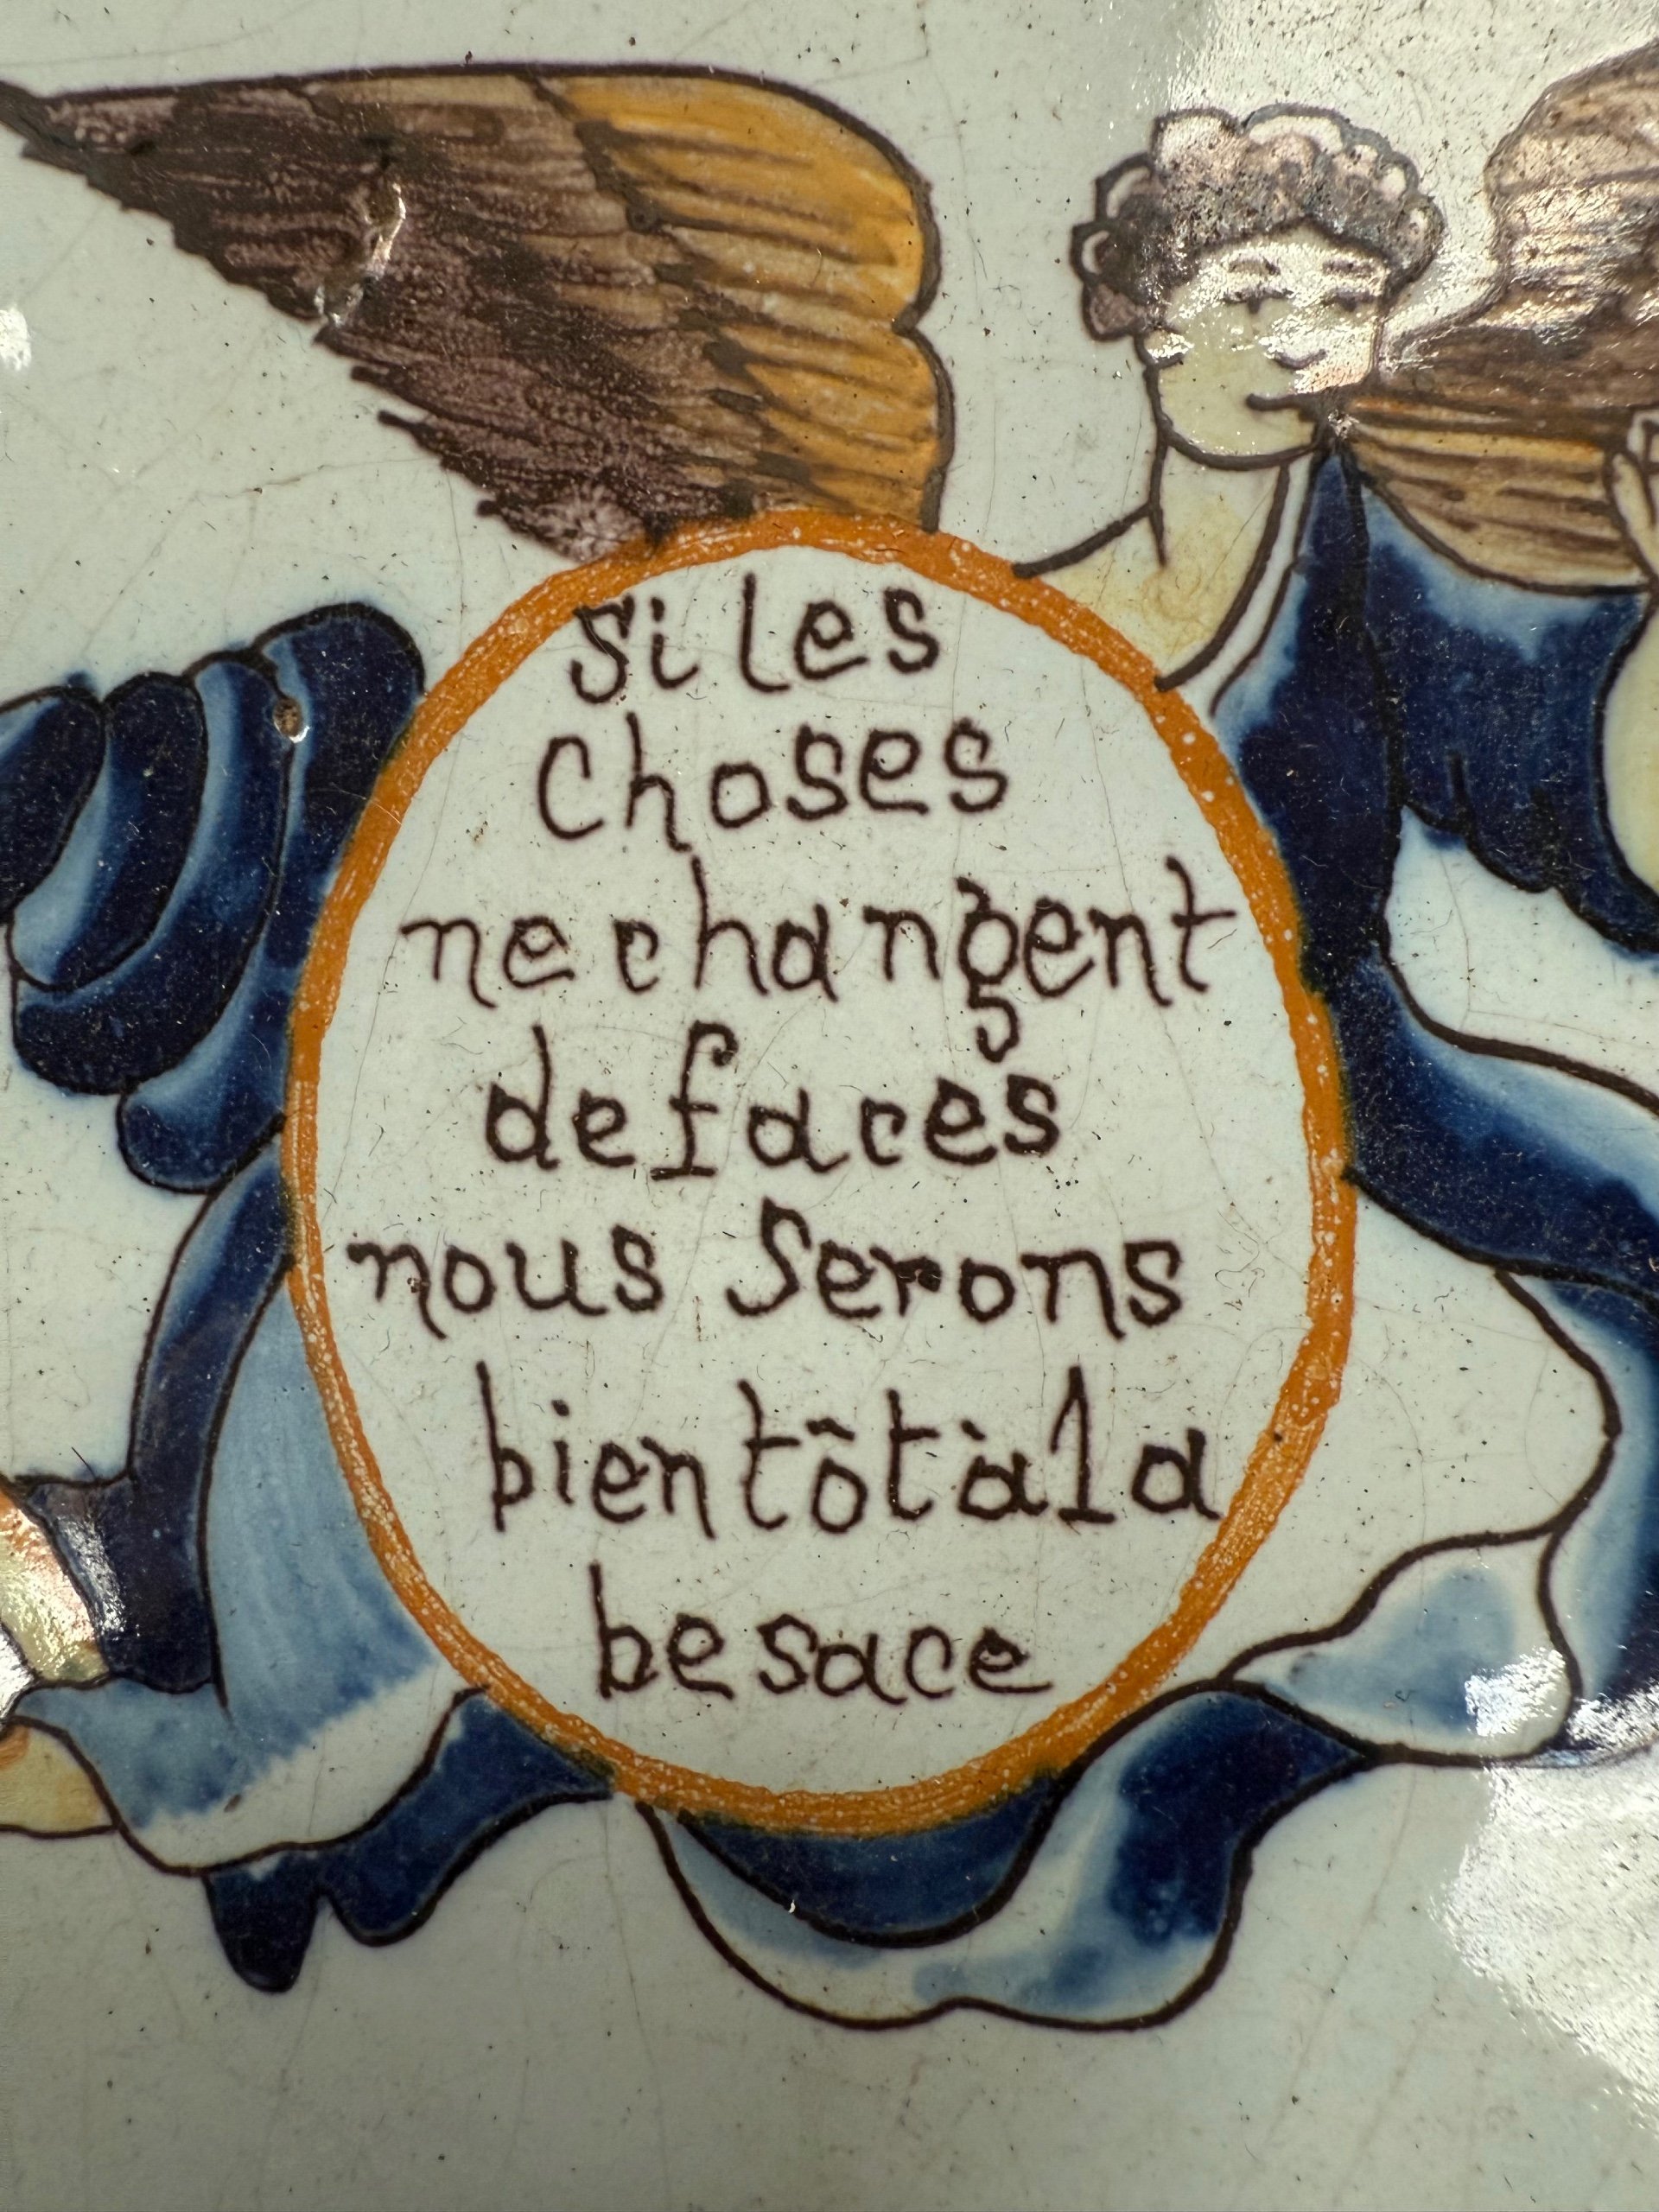 si les
choses
ne changent
de faces
nous serons
bientôt à la
besace